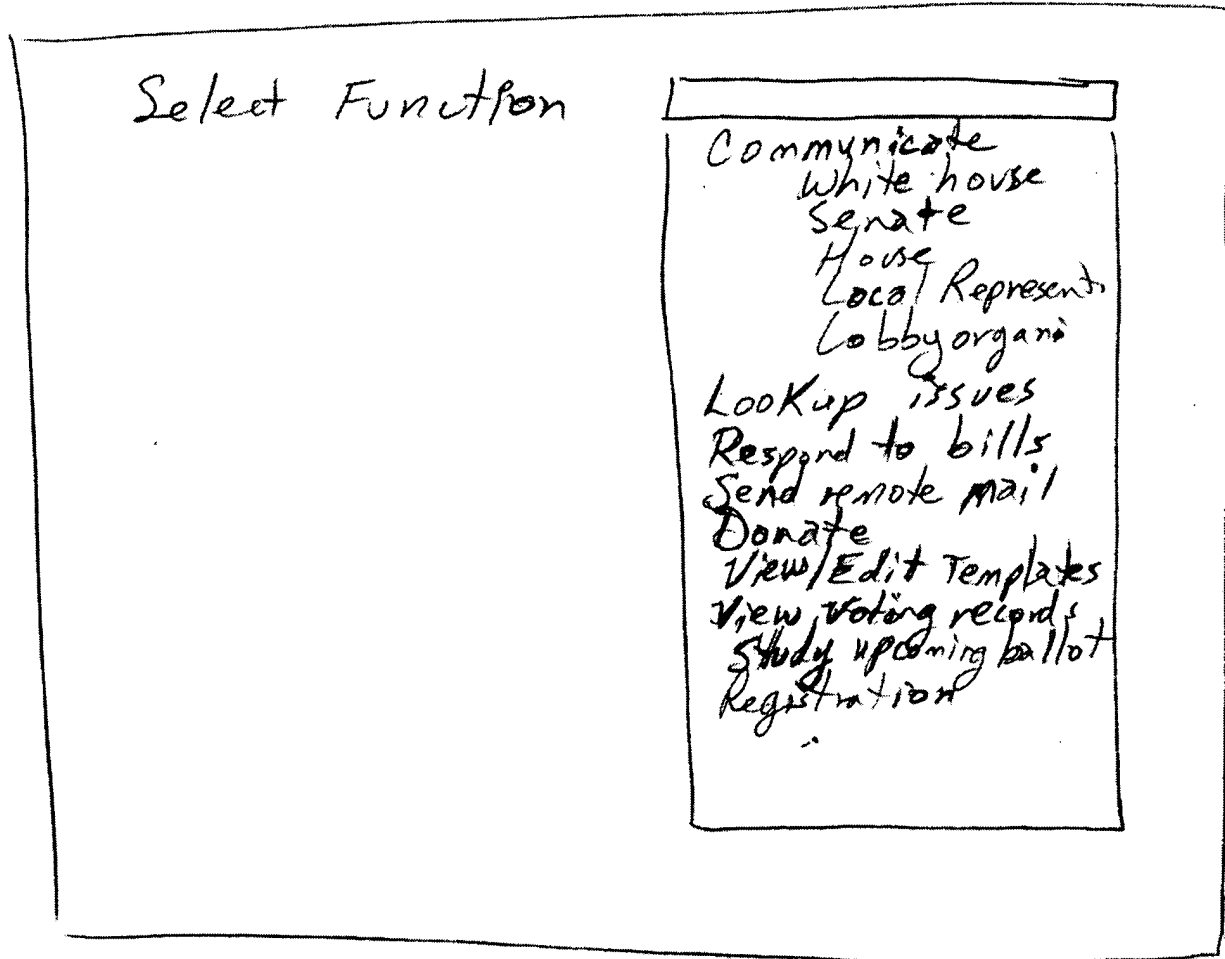 Select Function
Communicate
White house
Senate
House
Local Represent.
Lobby organi
Lookup issues
Respond to bills
Send remote mail
Donate
View/Edit Templates
View voting records
Study upcoming ballot
Registration